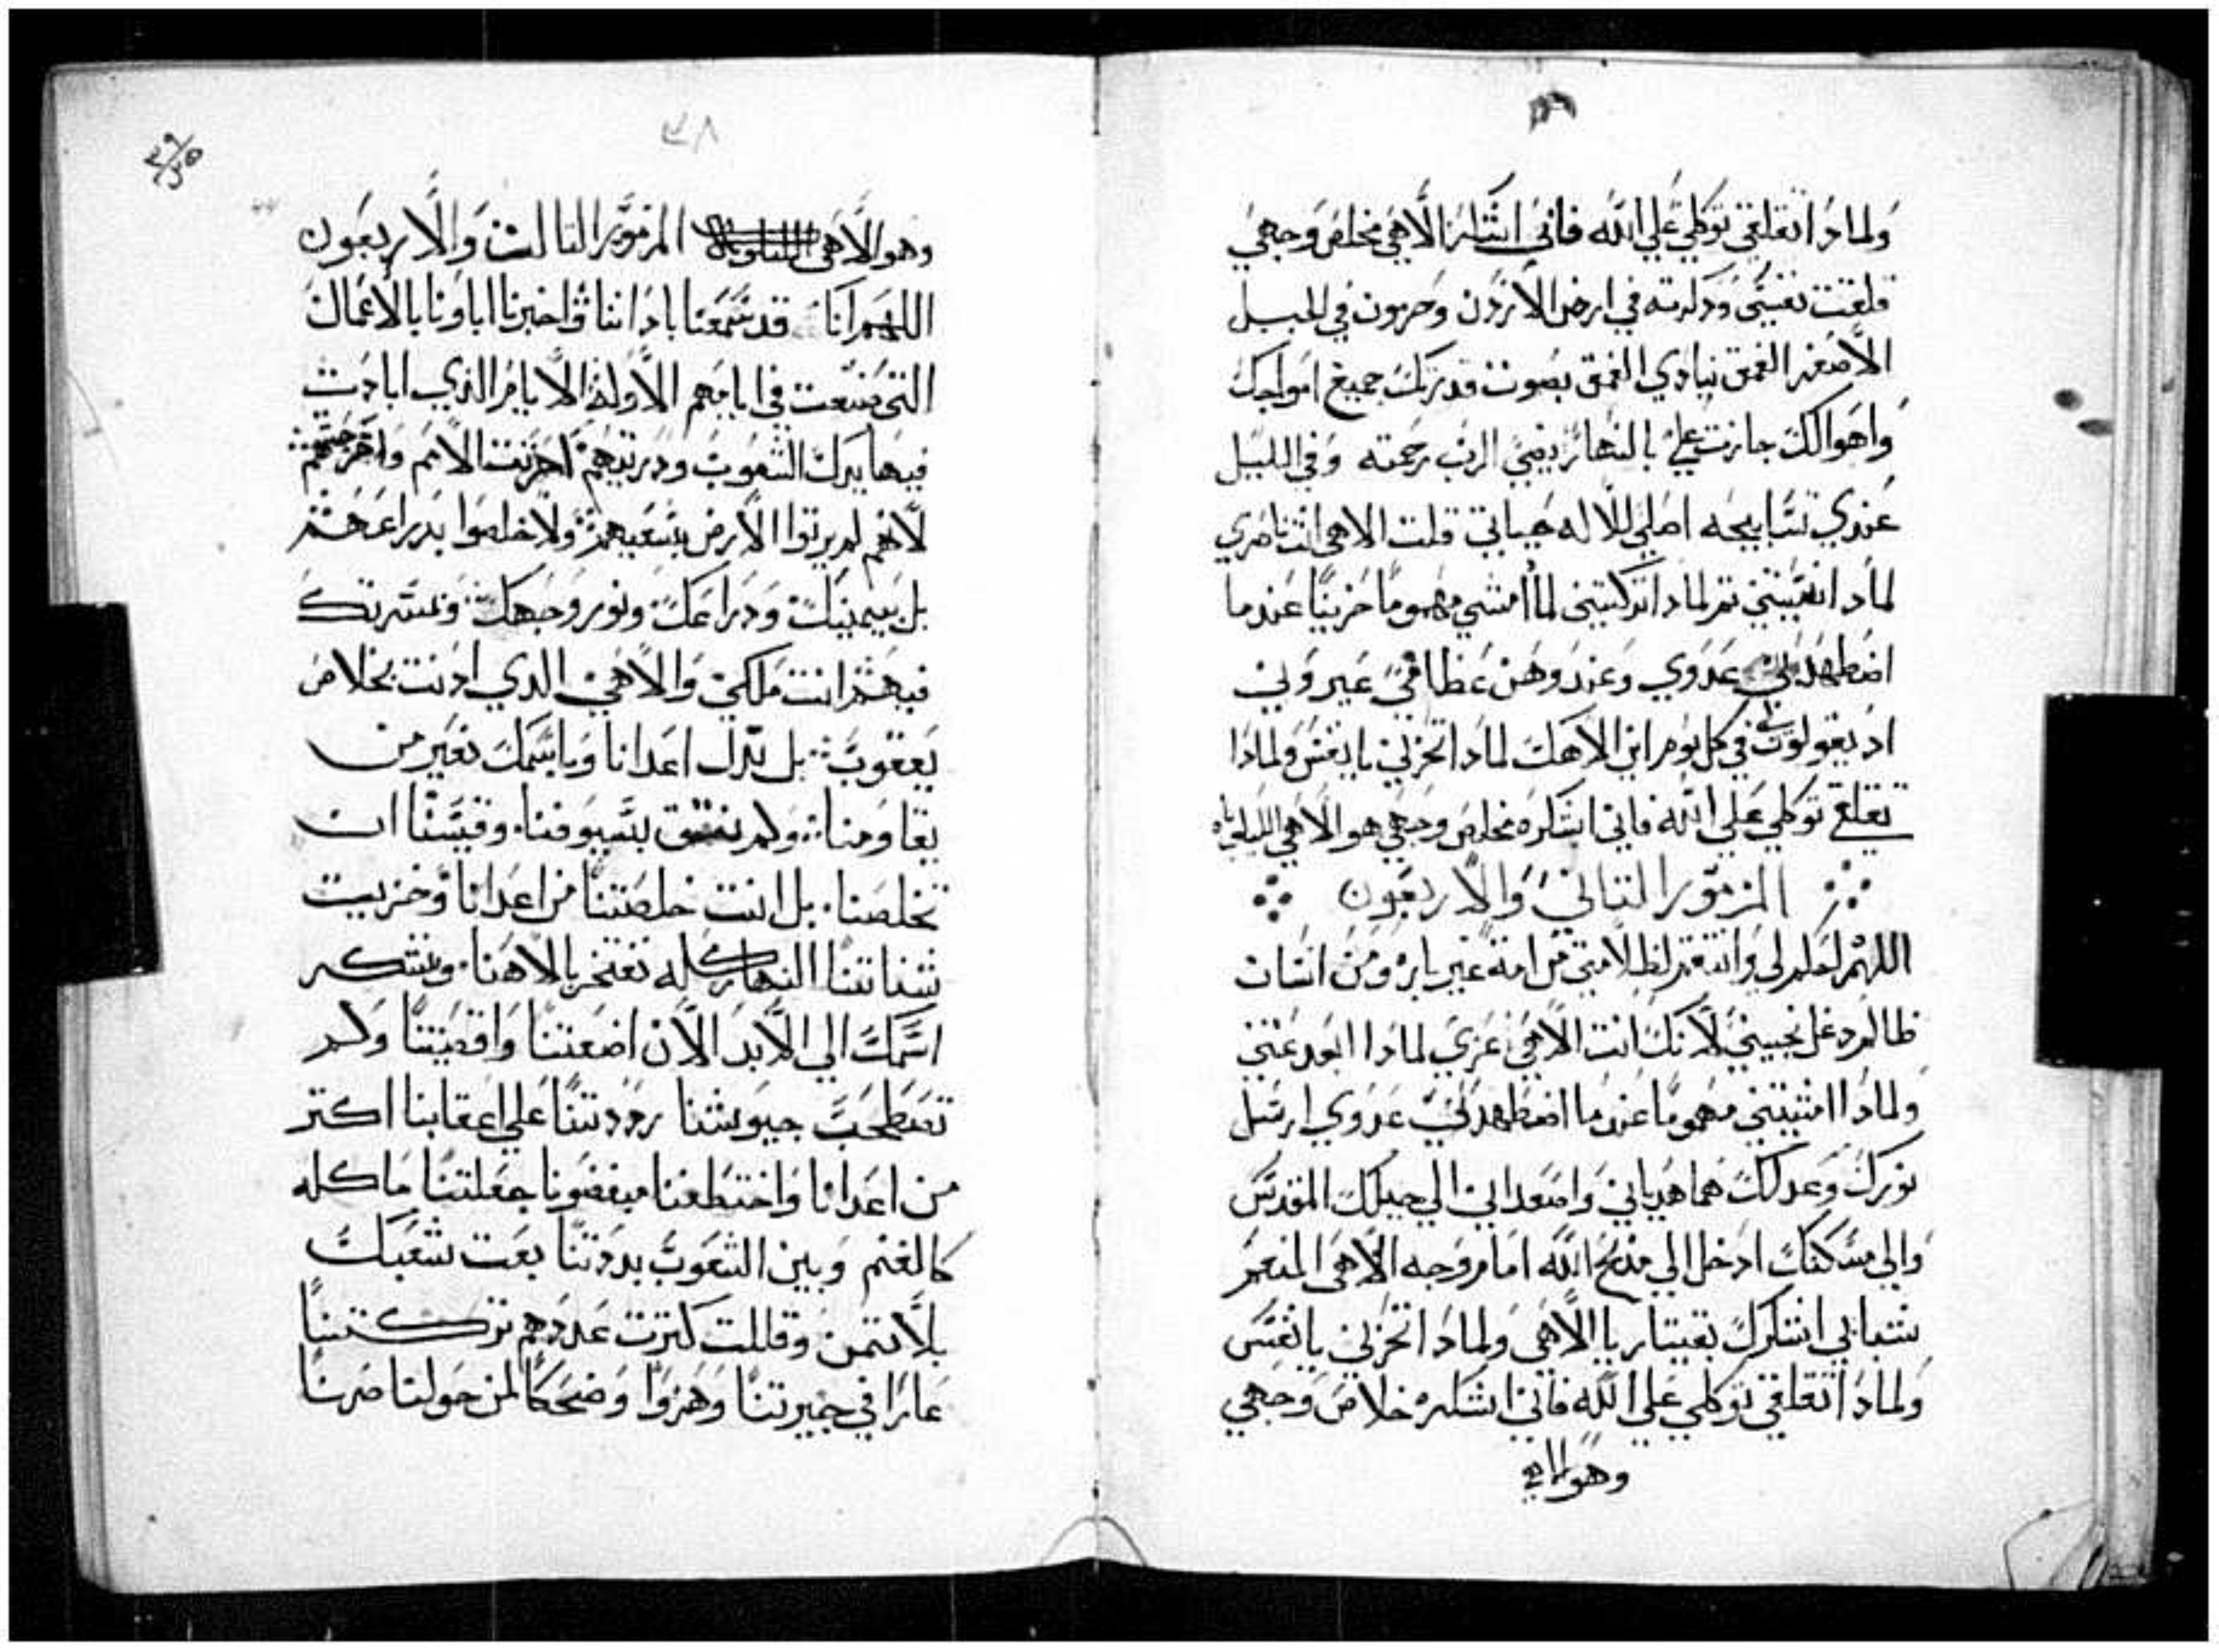 ولمادا تقلقي توكلي علي الله فاني اشكره الاهي مخلص وجهي
قلقت نفسي ودكرته في ارض الاردن وحرمون في الجبيل
الاصغر الغمق ينادي الغمق بصوت قدرتك جميع امواجك
واهوالك جازت علي بالنهار يضي الرب رحمته وفي الليل
عندي تسابيحه اصلي للاله حياتي قلت الاهي انت ناصري
لمادا انسيتني تم لمادا تركتني لما امشي مهموما حزينا عندما
اضطهدني عدوي وعند وهن عظامي عيروني
اد يقولون لي في كل يوم اين الاهك لمادا تحزني يا نفس ولمادا
تقلقي توكلي علي الله فاني اشكره مخلص وجهي هو الاهي الليلويا
المزمور التاني والاربعون
اللهم احكم لي وانتقم لظلامتي من امة غير باره ومن انسان
ظالم دغل نجيني لانك انت الاهي عزي لمادا ابعد عنني
ولمادا امشيتني مهموما عندما اضطهدني عدوي ارسل
نورك وعدلك هما هدياني واصعداني الي جبلك المقدس
والي مسكنك ادخل الي مذبح الله امام وجه الاهي المنعم
شبابي اشكرك بقيتار يا الاهي ولمادا تحزني يا نفس
ولمادا تقلقي توكلي علي الله فاني اشكره خلاص وجهي
وهو الاهي
٤٨
وهو الاهي المزمور التالت والاربعون
اللهم اننا قد سمعنا بادانا واخبرنا اباونا بالاعمال
التي صنعت في ايامهم الاوله الايام الذي ابادت
فيها يدك الشعوب ودريتهم احزنت الامم واخرجتهم
لانهم لم يرتوا الارض بسيفهم ولا خلصوا بدراعهم
بل بيمينك ودراعك ونور وجهك ومسرتك
فيهم انت ملكي والاهي الدي ادنت بخلاص
يعقوب بل بك اعدانا وباسمك نغير من
يقاومنا ولم نتق بسيوفنا وقسينا ان
تخلصنا بل انت خلصتنا من اعدانا وخزيت
شناتنا النهار كله نفتخر بالاهنا ونشكر
اسمك الي الابد الان اضعتنا واقصيتنا ولم
تصطحب جيوشنا رددتنا علي اعقابنا اكتر
من اعدانا واختطفنا مبغضونا جعلتنا ماكله
كالغنم وبين الشعوب بددتنا بعت شعبك
بلا تمن وقللت كترت عددهم تركتنا
عارا في جيرتنا وهزوا وضحكا لمن حولنا صرنا